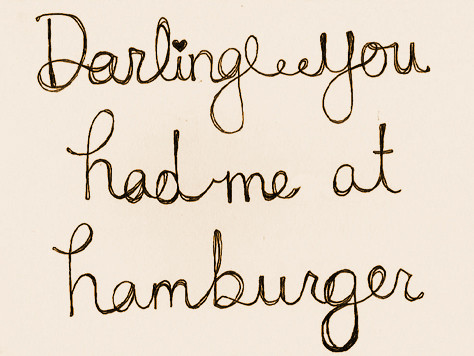 Darling you
had me at
hamburger